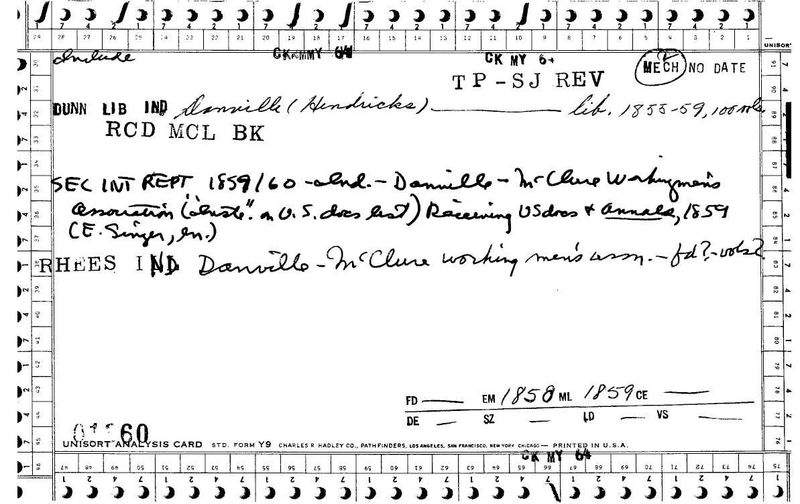 Include
CK MMY 64
CK MY 64
UNISORT
TP-SJ REV
MECH NO DATE
DUNN LIB IND Danville (Hendricks) ——— lib. 1855-59, 100 vols.
RCD MCL BK
SEC INT REPT 1859/60 - Ind. - Danville - McClure Workingmen's
Association ("Instit." on U.S. docs list) Receiving US docs & Annals, 1859
(E. Singer, ln.)
RHEES IND Danville - McClure working men's assn. - fd? - vols?
FD — EM 1858 ML 1859 CE —
DE — SZ — LD — VS —
01160
UNISORT ANALYSIS CARD STD. FORM Y9 CHARLES R. HADLEY CO., PATHFINDERS, LOS ANGELES, SAN FRANCISCO, NEW YORK CHICAGO — PRINTED IN U.S.A.
CK MY 64